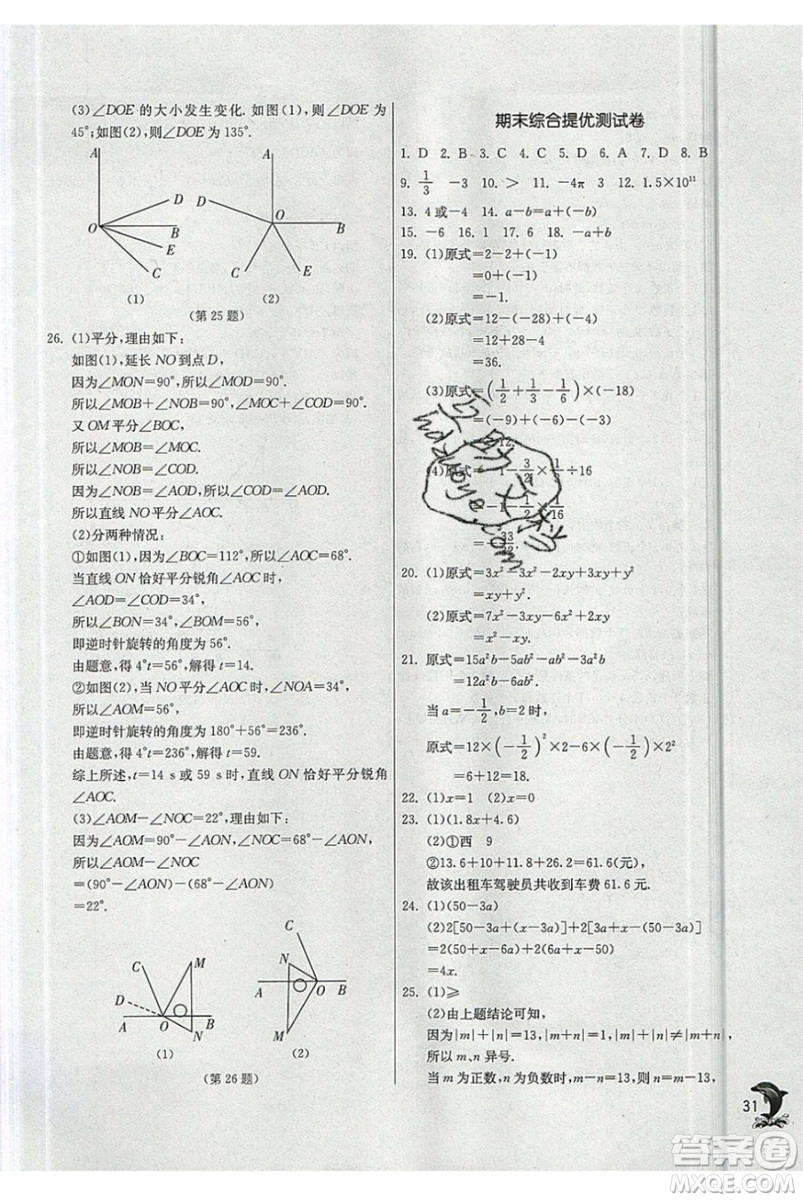 (3)∠DOE 的大小发生变化. 如图(1),则∠DOE 为
45°;如图(2),则∠DOE 为 135°.
A
D
O
B
E
C
(1)
A
D
O
B
C
E
(2)
(第 25 题)
26. (1)平分,理由如下:
如图(1),延长 NO 到点 D,
因为∠MON=90°,所以∠MOD=90°.
所以∠MOB+∠NOB=90°,∠MOC+∠COD=90°.
又 OM 平分∠BOC,
所以∠MOB=∠MOC.
所以∠NOB=∠COD.
因为∠NOB=∠AOD,所以∠COD=∠AOD.
所以直线 NO 平分∠AOC.
(2)分两种情况:
①如图(1),因为∠BOC=112°,所以∠AOC=68°.
当直线 ON 恰好平分锐角∠AOC 时,
∠AOD=∠COD=34°,
所以∠BON=34°,∠BOM=56°,
即逆时针旋转的角度为 56°.
由题意,得 4°t=56°,解得 t=14.
②如图(2),当 NO 平分∠AOC 时,∠NOA=34°,
所以∠AOM=56°,
即逆时针旋转的角度为 180°+56°=236°.
由题意,得 4°t=236°,解得 t=59.
综上所述,t=14 s或 59 s时,直线 ON 恰好平分锐角
∠AOC.
(3)∠AOM-∠NOC=22°,理由如下:
因为∠AOM=90°-∠AON,∠NOC=68°-∠AON,
所以∠AOM-∠NOC
=(90°-∠AON)-(68°-∠AON)
=22°.
C
M
D
A
O
B
N
(1)
C
N
A
O
B
M
(2)
(第 26 题)
期末综合提优测试卷
1. D 2. B 3. C 4. C 5. C 6. A 7. D 8. B
9. 1/3 -3 10. > 11. -4π 3 12. 1.5×10¹¹
13. 4 或-4 14. a-b=a+(-b)
15. -6 16. 1 17. 6 18. -a+b
19. (1)原式=2-2+(-1)
=0+(-1)
=-1.
(2)原式=12-(-28)+(-4)
=12+28-4
=36.
(3)原式=(1/2+1/3-1/6)×(-18)
=(-9)+(-6)-(-3)
=-12.
(4)原式=-1-3/2×1/÷16
=-1-1/2×1/16
=-33/32.
20. (1)原式=3x²-3x²-2xy+3xy+y²
=xy+y².
(2)原式=7x²-3xy-6x²+2xy
=x²-xy.
21. 原式=15a²b-5ab²-ab²-3a²b
=12a²b-6ab².
当 a=-1/2,b=2 时,
原式=12×(-1/2)²×2-6×(-1/2)×2²
=6+12=18.
22. (1)x=1 (2)x=3
23. (1)(1.8x+4.6)
(2)①西 9
②13.6+10+11.8+16.6+9.6=61.6(元),
故该出租车驾驶员共收到车费 61.6 元.
24. (1)(50-3a)
(2)2[50-3a+(x-3a)]+2[3a+x-(50-3a)]
=2(50+x-6a)+2(6a+x-50)
=4x.
25. (1)≥
(2)由上题结论可知,
因为|m|+|n|=13,|m+n|=1,|m|+|n|≠|m+n|,
所以 m、n 异号.
当 m 为正数,n 为负数时,m-n=13,则 n=m-13,
31
答案圈
MXQE.COM